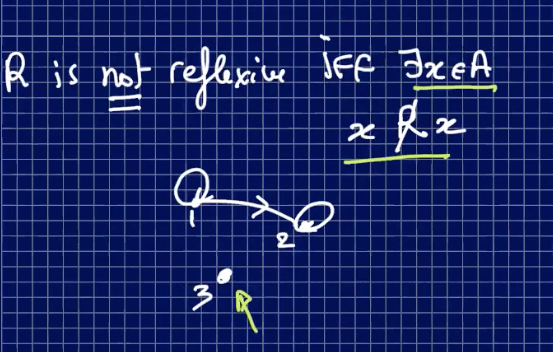 R is not reflexive iff ∃x∈A
x R̸ x
1
2
3